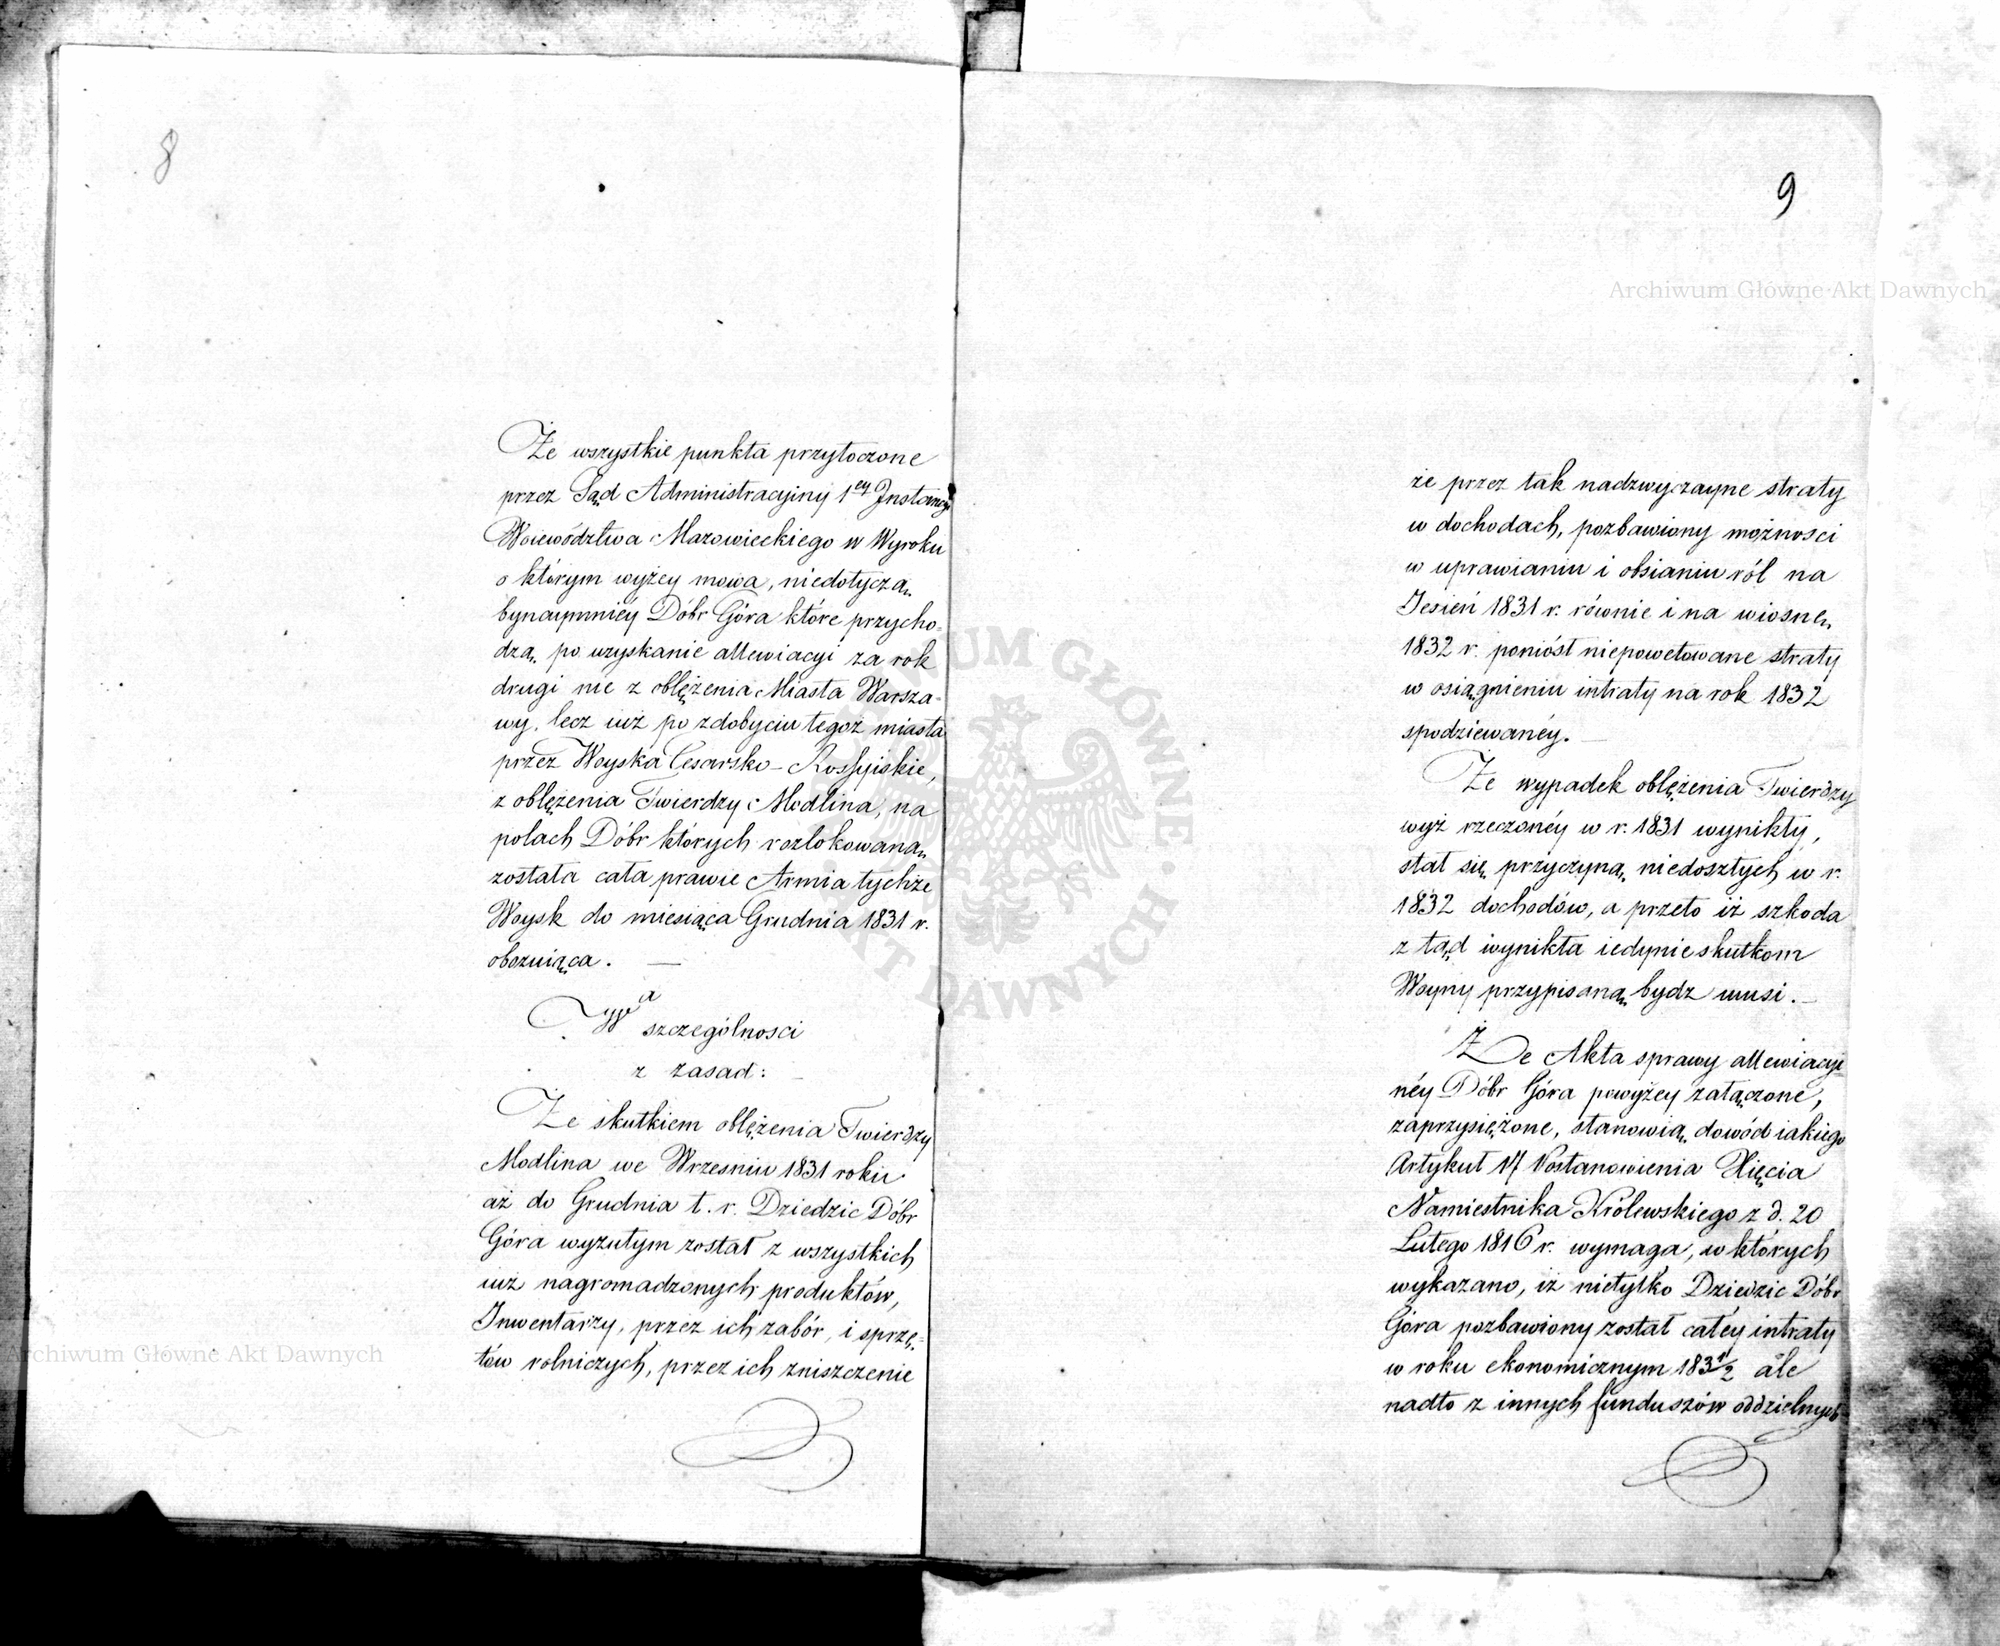 8
Że wszystkie punkta przytoczone
przez Sąd Administracyiny 1ey Instancyi
Woiewództwa Mazowieckiego w Wyroku
o którym wyżey mowa, niedotyczą
bynaymniéy Dóbr Góra które przycho=
dzą po uzyskanie allewiacyi za rok
drugi nie z oblężenia Miasta Warsza=
wy, lecz iuż po zdobyciu tegoż miasta
przez Woyska Cesarsko-Rossyiskie,
z oblężenia Twierdzy Modlina, na
polach Dóbr których rozlokowaną
została cała prawie Armia tychże
Woysk do miesiąca Grudnia 1831 r.
obozuiąca. —
W szczególnosci
z zasad:
Że skutkiem oblężenia Twierdzy
Modlina we Wrzesniu 1831 roku
aż do Grudnia t. r. Dziedzic Dóbr
Góra wyzutym został z wszystkich
iuż nagromadzonych produktów,
Inwentarzy, przez ich zabór, i sprzę=
tów rolniczych, przez ich zniszczenie
9
że przez tak nadzwyczayne straty
w dochodach, pozbawiony możnosci
w uprawianiu i obsianiu ról na
Jesień 1831 r. równie i na wiosnę
1832 r. poniósł niepowetowane straty
w osiągnieniu intraty na rok 1832
spodziewanéy. —
Że wypadek oblężenia Twierdzy
wyż rzeczonéy w r. 1831 wynikły,
stał się przyczyną niedoszłych w r.
1832 dochodów, a przeto iż szkoda
z tąd wynikła iedynie skutkom
Woyny przypisaną bydz musi. —
Że Akta sprawy allewiacyi=
néy Dóbr Góra powyżey załączone,
zaprzysiężone, stanowią dowód iakiego
Artykuł 17 Postanowienia Xięcia
Namiestnika Królewskiego z d. 20
Lutego 1816 r. wymaga, w których
wykazano, iż nietylko Dziedzic Dóbr
Góra pozbawiony został całéy intraty
w roku ekonomicznym 183 1/2 ale
nadto z innych funduszów oddzielnych
Archiwum Główne Akt Dawnych
Archiwum Główne Akt Dawnych
ARCHIWUM GŁÓWNE · AKT DAWNYCH ·